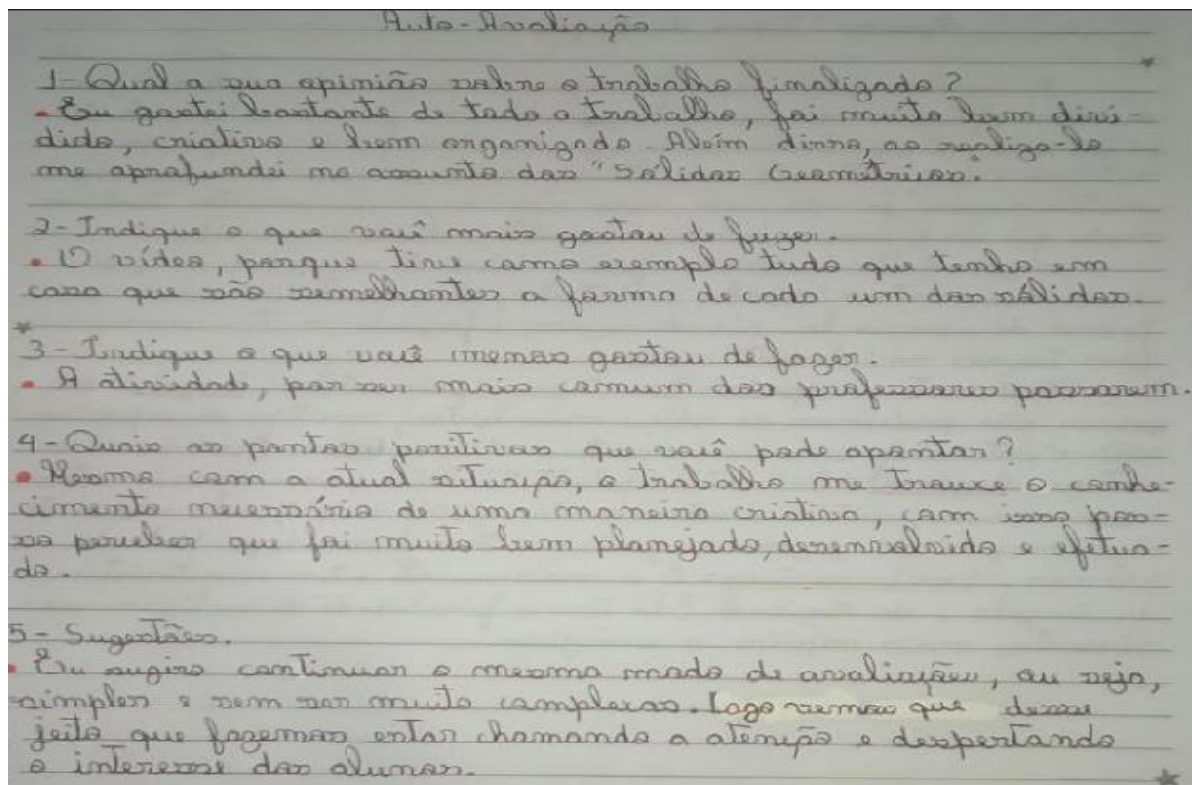 Auto-Avaliação
1- Qual a sua opinião sobre o trabalho finalizado?
• Eu gostei bastante de todo o trabalho, foi muito bem divi-
dido, criativo e bem organizado. Além disso, ao realiza-lo
me aprofundei no assunto dos "Sólidos Geométricos.
2- Indique o que você mais gostou de fazer.
• O vídeo, porque tive como exemplo tudo que tenho em
casa que são semelhantes a forma de cada um dos sólidos.
3- Indique o que você menos gostou de fazer.
• A atividade, por ser mais comum dos professores passarem.
4- Quais os pontos positivos que você pode apontar?
• Mesmo com a atual situação, o trabalho me trouxe o conhe-
cimento necessário de uma maneira criativa, com isso pos-
so perceber que foi muito bem planejado, desenvolvido e efetua-
do.
5- Sugestões.
• Eu sugiro continuar o mesmo modo de avaliação, ou seja,
simples e sem ser muito complexas. Logo vemos que desse
jeito que fazemos estar chamando a atenção e despertando
o interesse dos alunos.